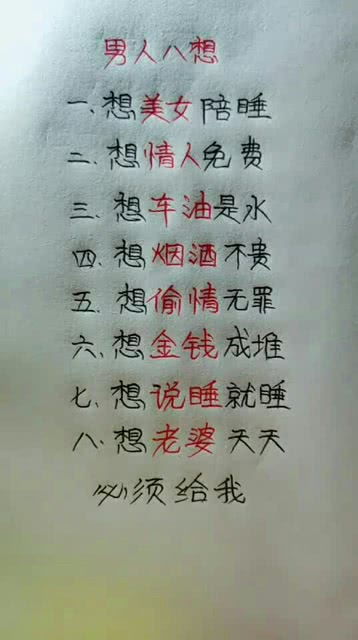 男人八想
一、想美女陪睡
二、想情人免费
三、想车油是水
四、想烟酒不贵
五、想偷情无罪
六、想金钱成堆
七、想说睡就睡
八、想老婆天天
必须给我